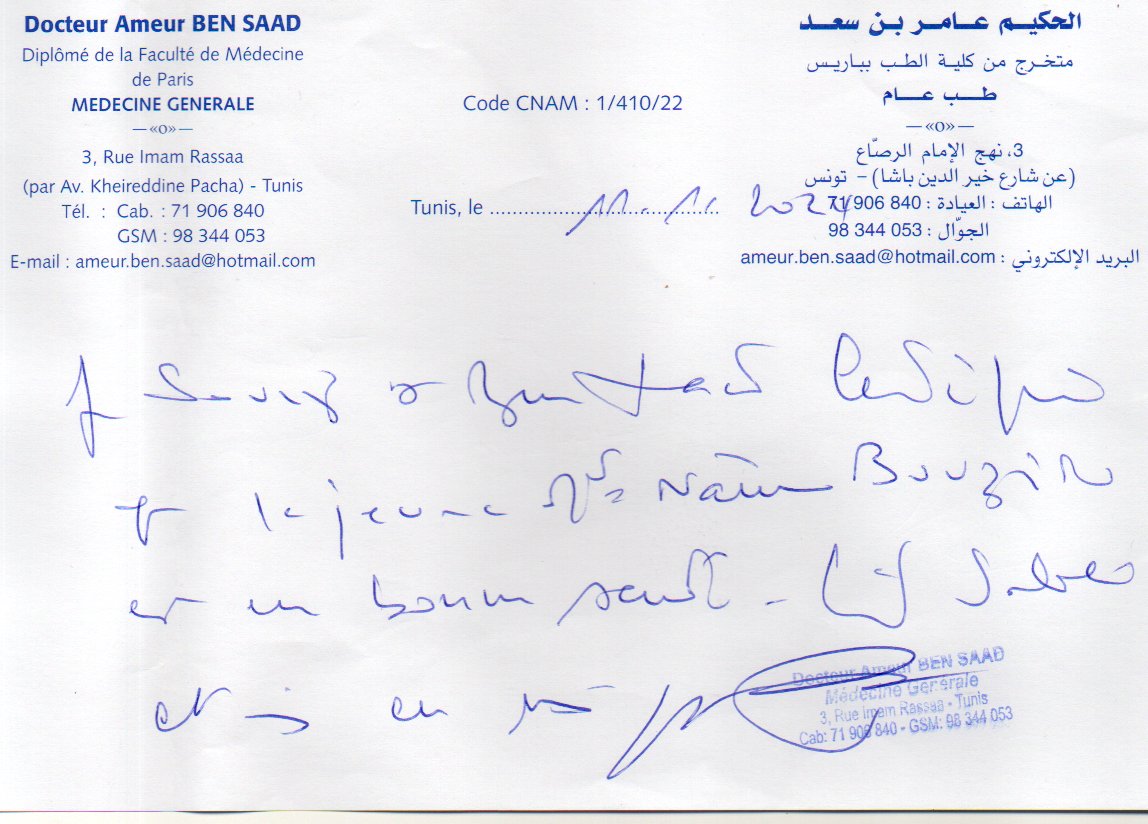 Docteur Ameur BEN SAAD
Diplômé de la Faculté de Médecine
de Paris
MEDECINE GENERALE
—«o»—
3, Rue Imam Rassaa
(par Av. Kheireddine Pacha) - Tunis
Tél. : Cab. : 71 906 840
GSM : 98 344 053
E-mail : ameur.ben.saad@hotmail.com
Code CNAM : 1/410/22
Tunis, le 2024
الحكيم عامر بن سعد
متخرج من كلية الطب بباريس
طب عام
—«o»—
3، نهج الإمام الرصّاع
(عن شارع خير الدين باشا) - تونس
الهاتف : العيادة : 840 906 71
الجوّال : 053 344 98
البريد الإلكتروني : ameur.ben.saad@hotmail.com
Je soussigné Dr Ben Saad certifie
que le jeune
est en bonne santé -
Docteur Ameur BEN SAAD
Médecine Générale
3, Rue Imam Rassaa - Tunis
Cab: 71 906 840 - GSM: 98 344 053